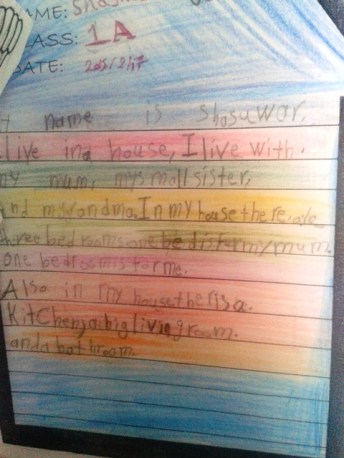 NAME: Shasu
CLASS: 1A
DATE: 2015/2/17
y name is shasuwar,
live ina house, I live with.
my mum, my small sister,
and mygrandma. In my house there, are
three bedrooms one bedisformymum
one bedroomis for me.
Also in my house theris a.
kitchen, a big living room.
and a bathroom.